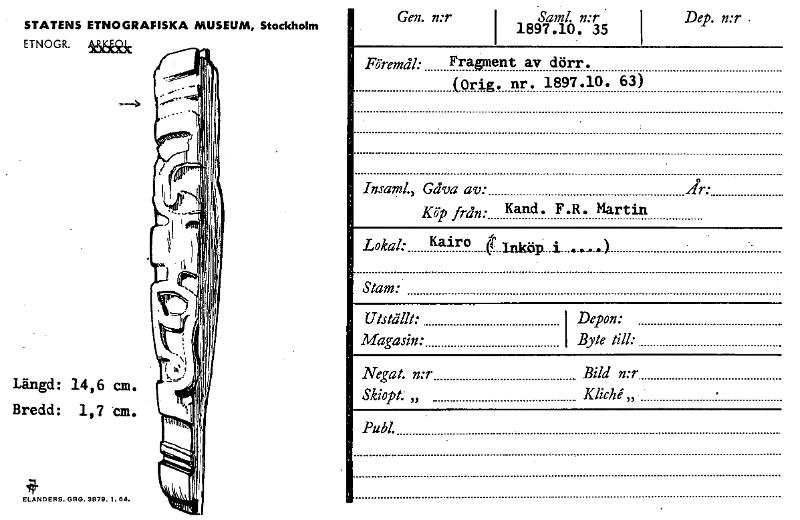 STATENS ETNOGRAFISKA MUSEUM, Stockholm
ETNOGR. ARKEOL
Längd: 14,6 cm.
Bredd: 1,7 cm.
ELANDERS. GBG. 3879. 1. 64.
Gen. n:r Saml. n:r Dep. n:r
1897.10. 35
Föremål: Fragment av dörr.
(Orig. nr. 1897.10. 63)
Insaml., Gåva av: År:
Köp från: Kand. F.R. Martin
Lokal: Kairo ( Inköp i ....)
Stam:
Utställt: Depon:
Magasin: Byte till:
Negat. n:r Bild n:r
Skiopt. „ Kliché „
Publ.